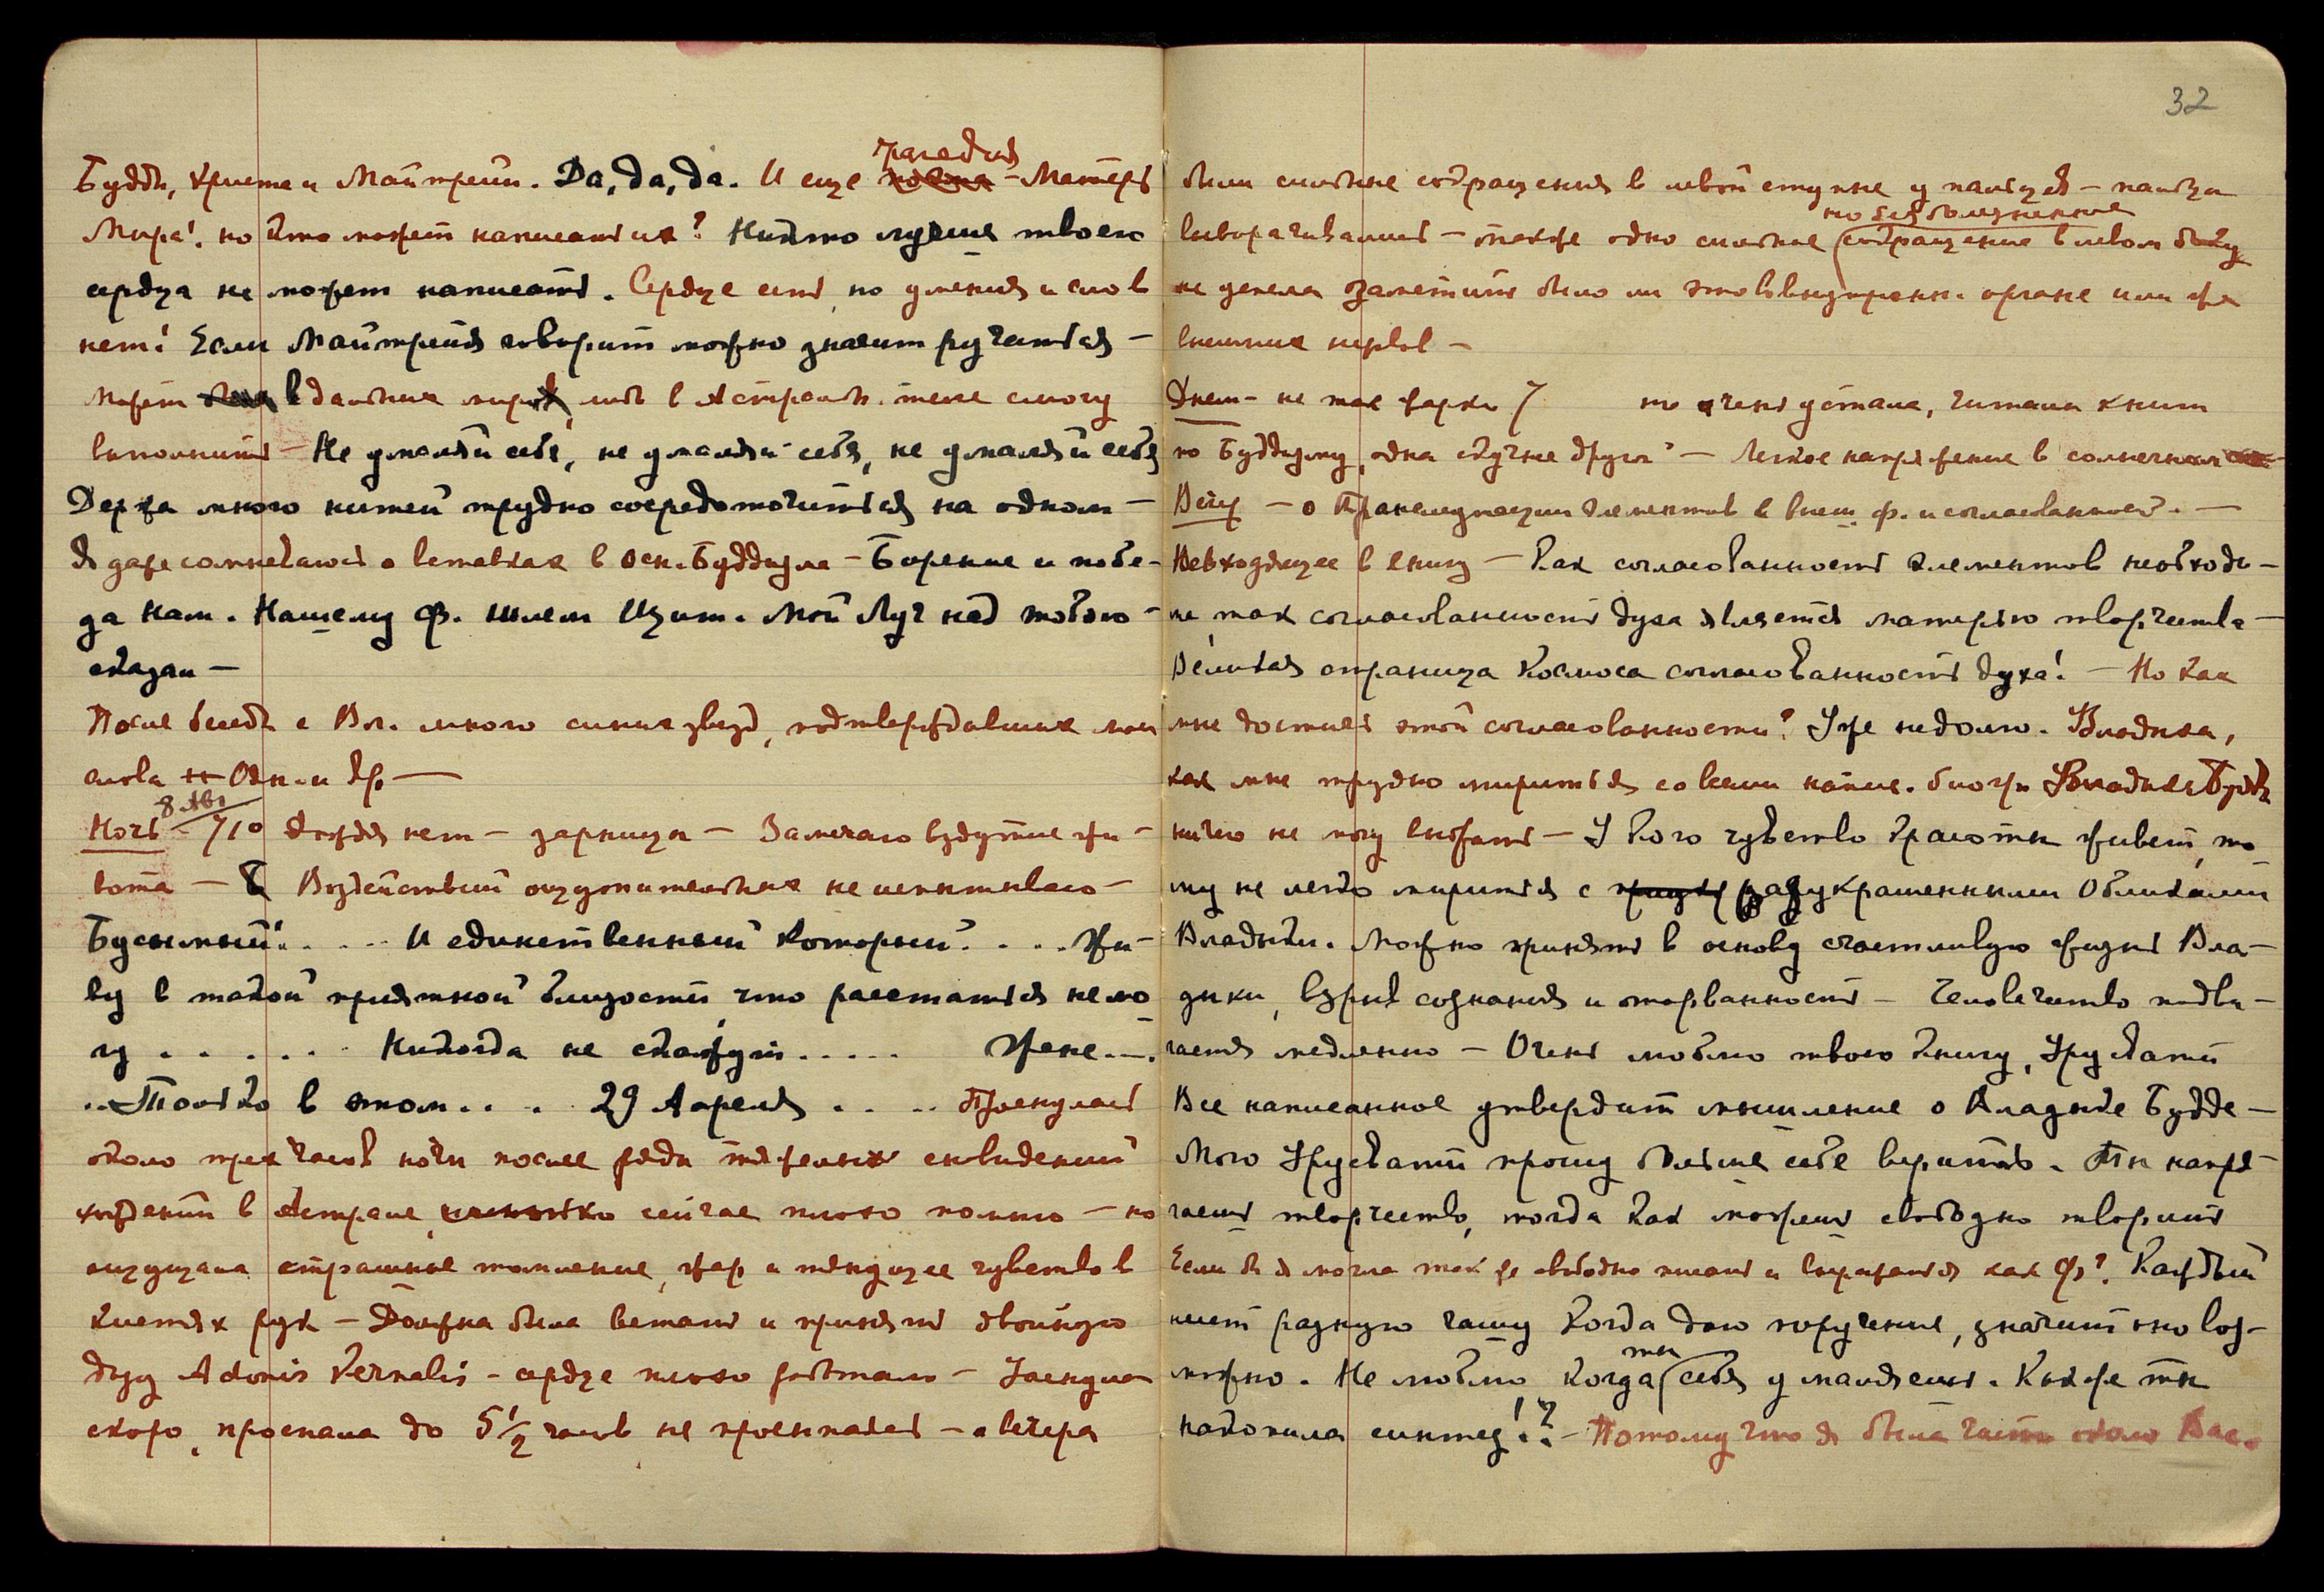 Будды, Христа и Майтрейи. Да, да, да. И еще трагедия – Матерь
Мира! но кто может написать их? Никто лучше твоего
сердца не может написать. Сердце есть, но умения и слов
нет! Если Майтрейя говорит можно значит ручаться –
Может в дальних мирах, либо в Астральн. теле смогу
выполнить – Не умаляй себя, не умаляй себя, не умаляй себя
Держа много нитей трудно сосредоточиться на одном –
Я даже сомневаюсь о вставках в Осн. Буддизма – Борение и побе-
да Нам. Нашему Ф. шлем Щит. Мой Луч над тобою –
сказал –
После беседы с Вл. много синих звезд, подтверждавших мои
слова Одн. и др. –
8 Авг
Ночь – 71° Дождя нет – зарницы – Замечаю вздутие жи-
вота – Воздействий ощутительных не испытываю –
Бусымный! . . . . И единственный который . . . . Жи-
ву в такой приятной близости, что расстаться не мо-
гу . . . . . Никогда не скажут . . . . . Жене . . .
.. Только в этом . . . 29 Апреля . . . . Проснулась
около трех часов ночи после ряда тяжелых сновидений
хождений в Астрале, сейчас плохо помню – но
ощущала страшное томление, жар и тянущее чувство в
кистях рук – Должна была встать и принять двойную
дозу Adonis Vernalis – сердце плохо работало – Заснула
скоро, проспала до 5 1/2 часов не просыпаясь – с вечера
32
были сильные содрогания в левой ступне у пальцев – пальцы
выворачивались – также одно сильное но безболезненное содрогание в левом боку
не успела заметить было ли это во внутренн. органе или же
внешних нервов –
Днем – не так жарко / но очень устала, читали книги
по Буддизму, одна скучнее другой – Легкое напряжение в солнечном
Веч – о Трансмутации элементов в внеш. ф. и согласованност. –
Невходящее в книгу – Как согласованность элементов необходи-
ма, так согласованность духа является матерью творчества –
Великая страница Космоса согласованность духа! – Но как
мне достичь этой согласованности? Уже недолго. Владыка,
как мне трудно мириться со всеми напис. биогр. Владыки Будды
ничего не могу выбрать – У кого чувство красоты живет, то-
му не легко мириться с разукрашенными Обликами
Владыки. Можно принять в основу счастливую жизнь Вла-
дыки, взрыв сознания и оторванность – Человечество подви-
гается медленно – Очень люблю твою книгу, Урусвати
Все написанное утвердит мышление о Владыке Будде –
Мою Урусвати прошу больше себе верить. Ты напря-
гаешь творчество, тогда как можешь свободно творить
Если бы я могла так же свободно писать и выражаться как Ф.? Каждый
несет разную чашу Когда даю поручение, значит оно воз-
можно. Не люблю когда ты себя умаляешь. Как же ты
накопила синтез!? – Потому что я была часто около Вас.